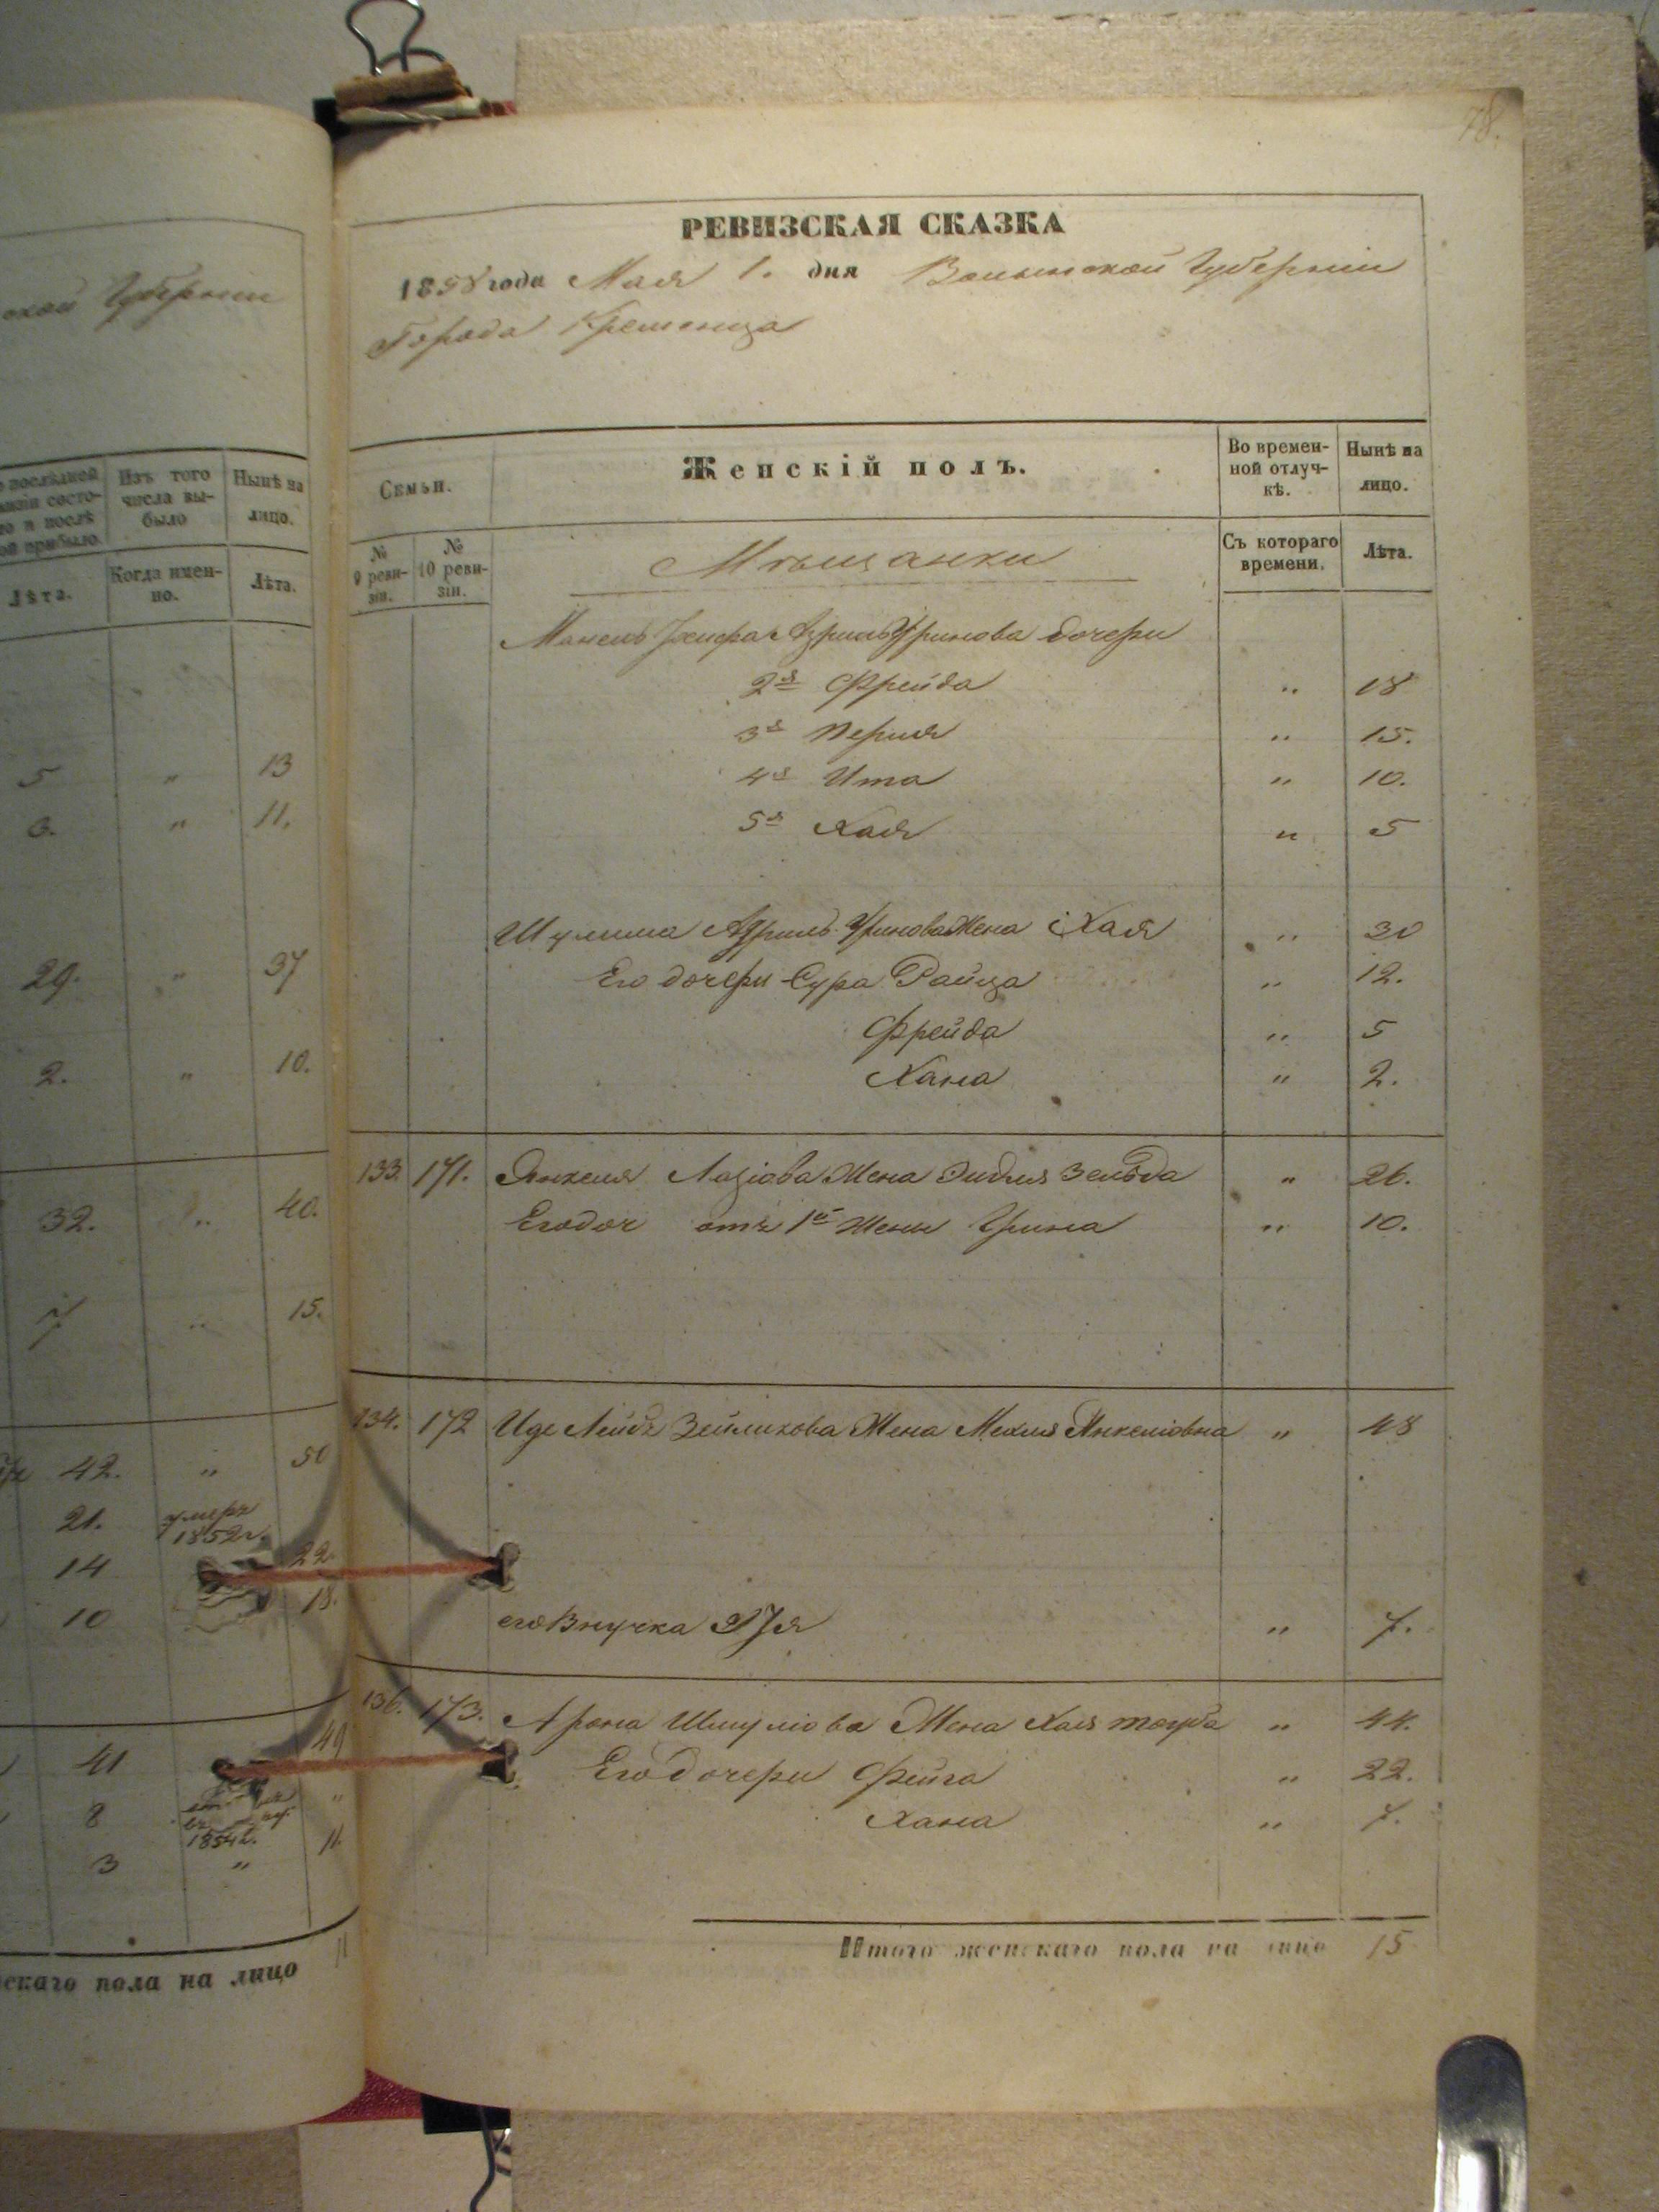 ской Губернии
о послѣдней
визіи состо-
го и послѣ
ой прибыло.
Изъ того
числа вы-
было
Нынѣ на
лицо.
Лѣта.
Когда имен-
но.
Лѣта.
5 " 13
" 11.
29. " 37
2. " 10.
32. " 40.
7 " 15.
42. " 50
21. умеръ
1852г.
14 22.
10 18.
41 49
8 "
1854г.
3 " 11
11
скаго пола на лицо
78.
РЕВИЗСКАЯ СКАЗКА
1858 года Мая 1. дня Волынской Губернии
Города Кременца
Семьи.
Женскій полъ.
Во времен-
ной отлуч-
кѣ.
Нынѣ на
лицо.
№
9 реви-
зіи.
№
10 реви-
зіи.
Мѣщанки
Съ котораго
времени.
Лѣта.
Азриль Уринова дочери
2я Фрейда " 18
3я Перля " 15.
4я Ита " 10.
5я Хая " 5
Шулима Азриль Уринова Жена Хая " 30
Его дочери Сура Райца " 12.
Фрейда " 5
Хана " 2.
133. 171. Янкеля Жена Эидля Зельда " 26.
Его доч отъ 1й Жены " 10.
134. 172 Ице Лейбъ Зейликова Жена Янкеліовна " 48
его Внучка " 7.
136. 173. Арона Шмуліова Жена Хая " 44.
Его дочери Фейга " 22.
Хана " 7.
Итого женскаго пола на лицо 15